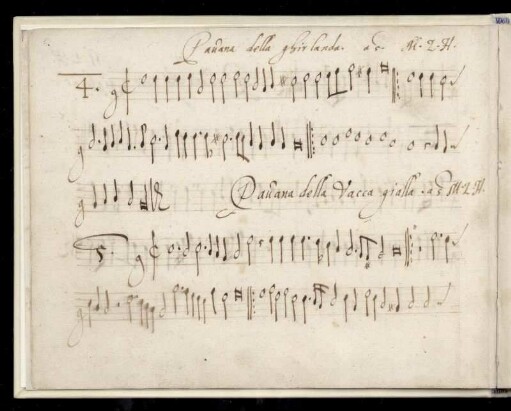 Pauana della ghirlanda. a 5. M. L. H.
4.
Pauana della Vacca gialla a 5 M. L. H.
5.